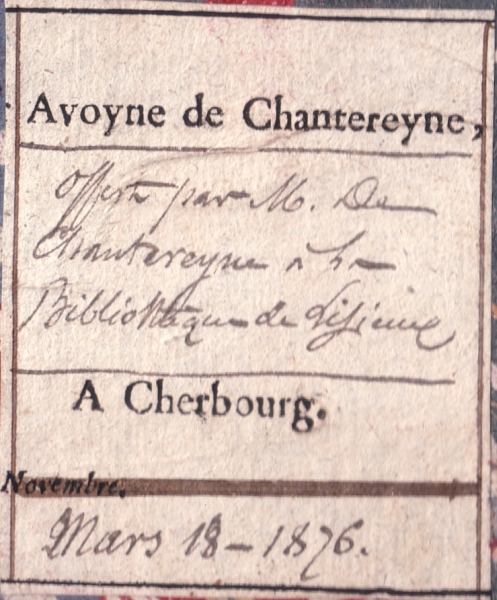 Avoyne de Chantereyne,
Offert par M. De
Chantereyne à la
Bibliothèque de Lisieux
A Cherbourg.
Novembre.
Mars 18 - 1876.